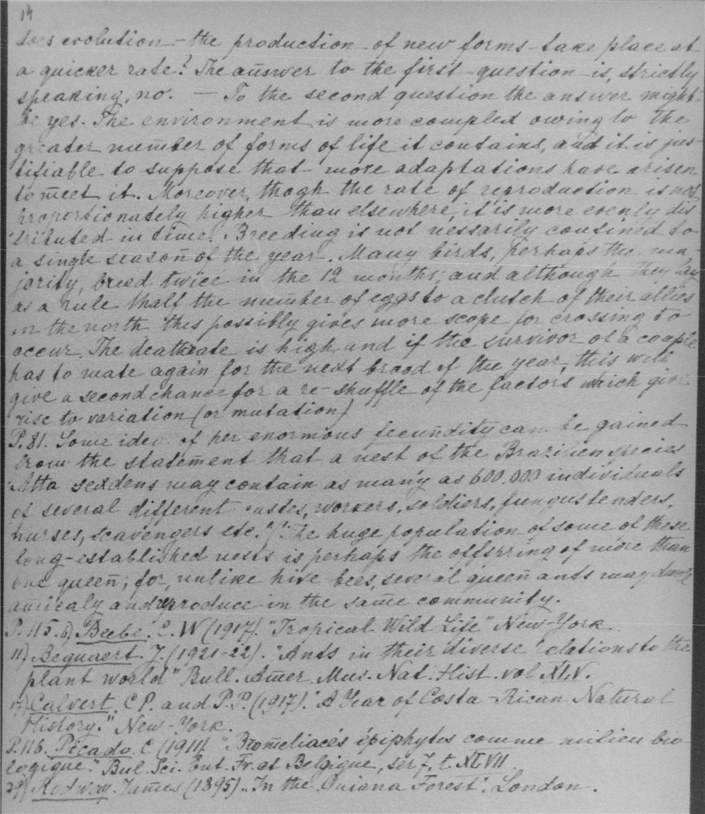 14
does evolution – the production of new forms take place at
a quicker rate? The answer to the first question is, strictly
speaking, no. – To the second question the answer might
be yes. The environment is more compled owing to the
greater number of forms of life it contains, and it is jus-
tifiable to suppose that more adaptations have arisen
to meet it. Moreover, thogh the rate of reproduction is not
proportionately higher than elsewhere, it is more evenly dis
tributed in time. Breeding is not nessarily consined to
a single season of the year. Many birds, perhaps the ma-
jority, breed twice in the 12 months; and although they lay
as a rule thalf the number of eggs to a clutch of their allies
in the north this possibly gives more scope for crossing to
occur. The deathrate is high and if the survivor of a couple
has to mate again for the next brood of the year, this will
give a second chance for a re-shuffle of the factors which give
rise to variation (or mutation)
P. 81. Some idea of her enormous fecundity can be gained
from the statement that a nest of the Brazilien species
Atta sexdens may contain as many as 600,000 individuals
of several different castes, workers, soldiers, fungus tenders,
nurses, scavengers etc. The huge population of some of these
long-established nests is perhaps the offspring of more than
one queen; for, unlike hive bees, several queen ants may dwell
amicaly and reproduce in the same community.
P. 115. 6) Beebe. C. W (1917). "Tropical Wild Life" New-York.
11) Bequaert. J. (1921-22). "Ants in their diverse relations to the
plant world" Bull. Amer Mus. Nat. Hist. vol XLV.
17) Calvert. C P. and P.P. (1917). "A Year of Costa-Rican Natural
History." New-York.
P. 116. Picado. C (1911). "Bromeliacés épiphytes comme milieu bio
logique." Bul. Sci. Ent. Fr. at Belgique, sér 7. t. XLVII.
29) Rodway. James (1895). "In the Guiana Forest". London.